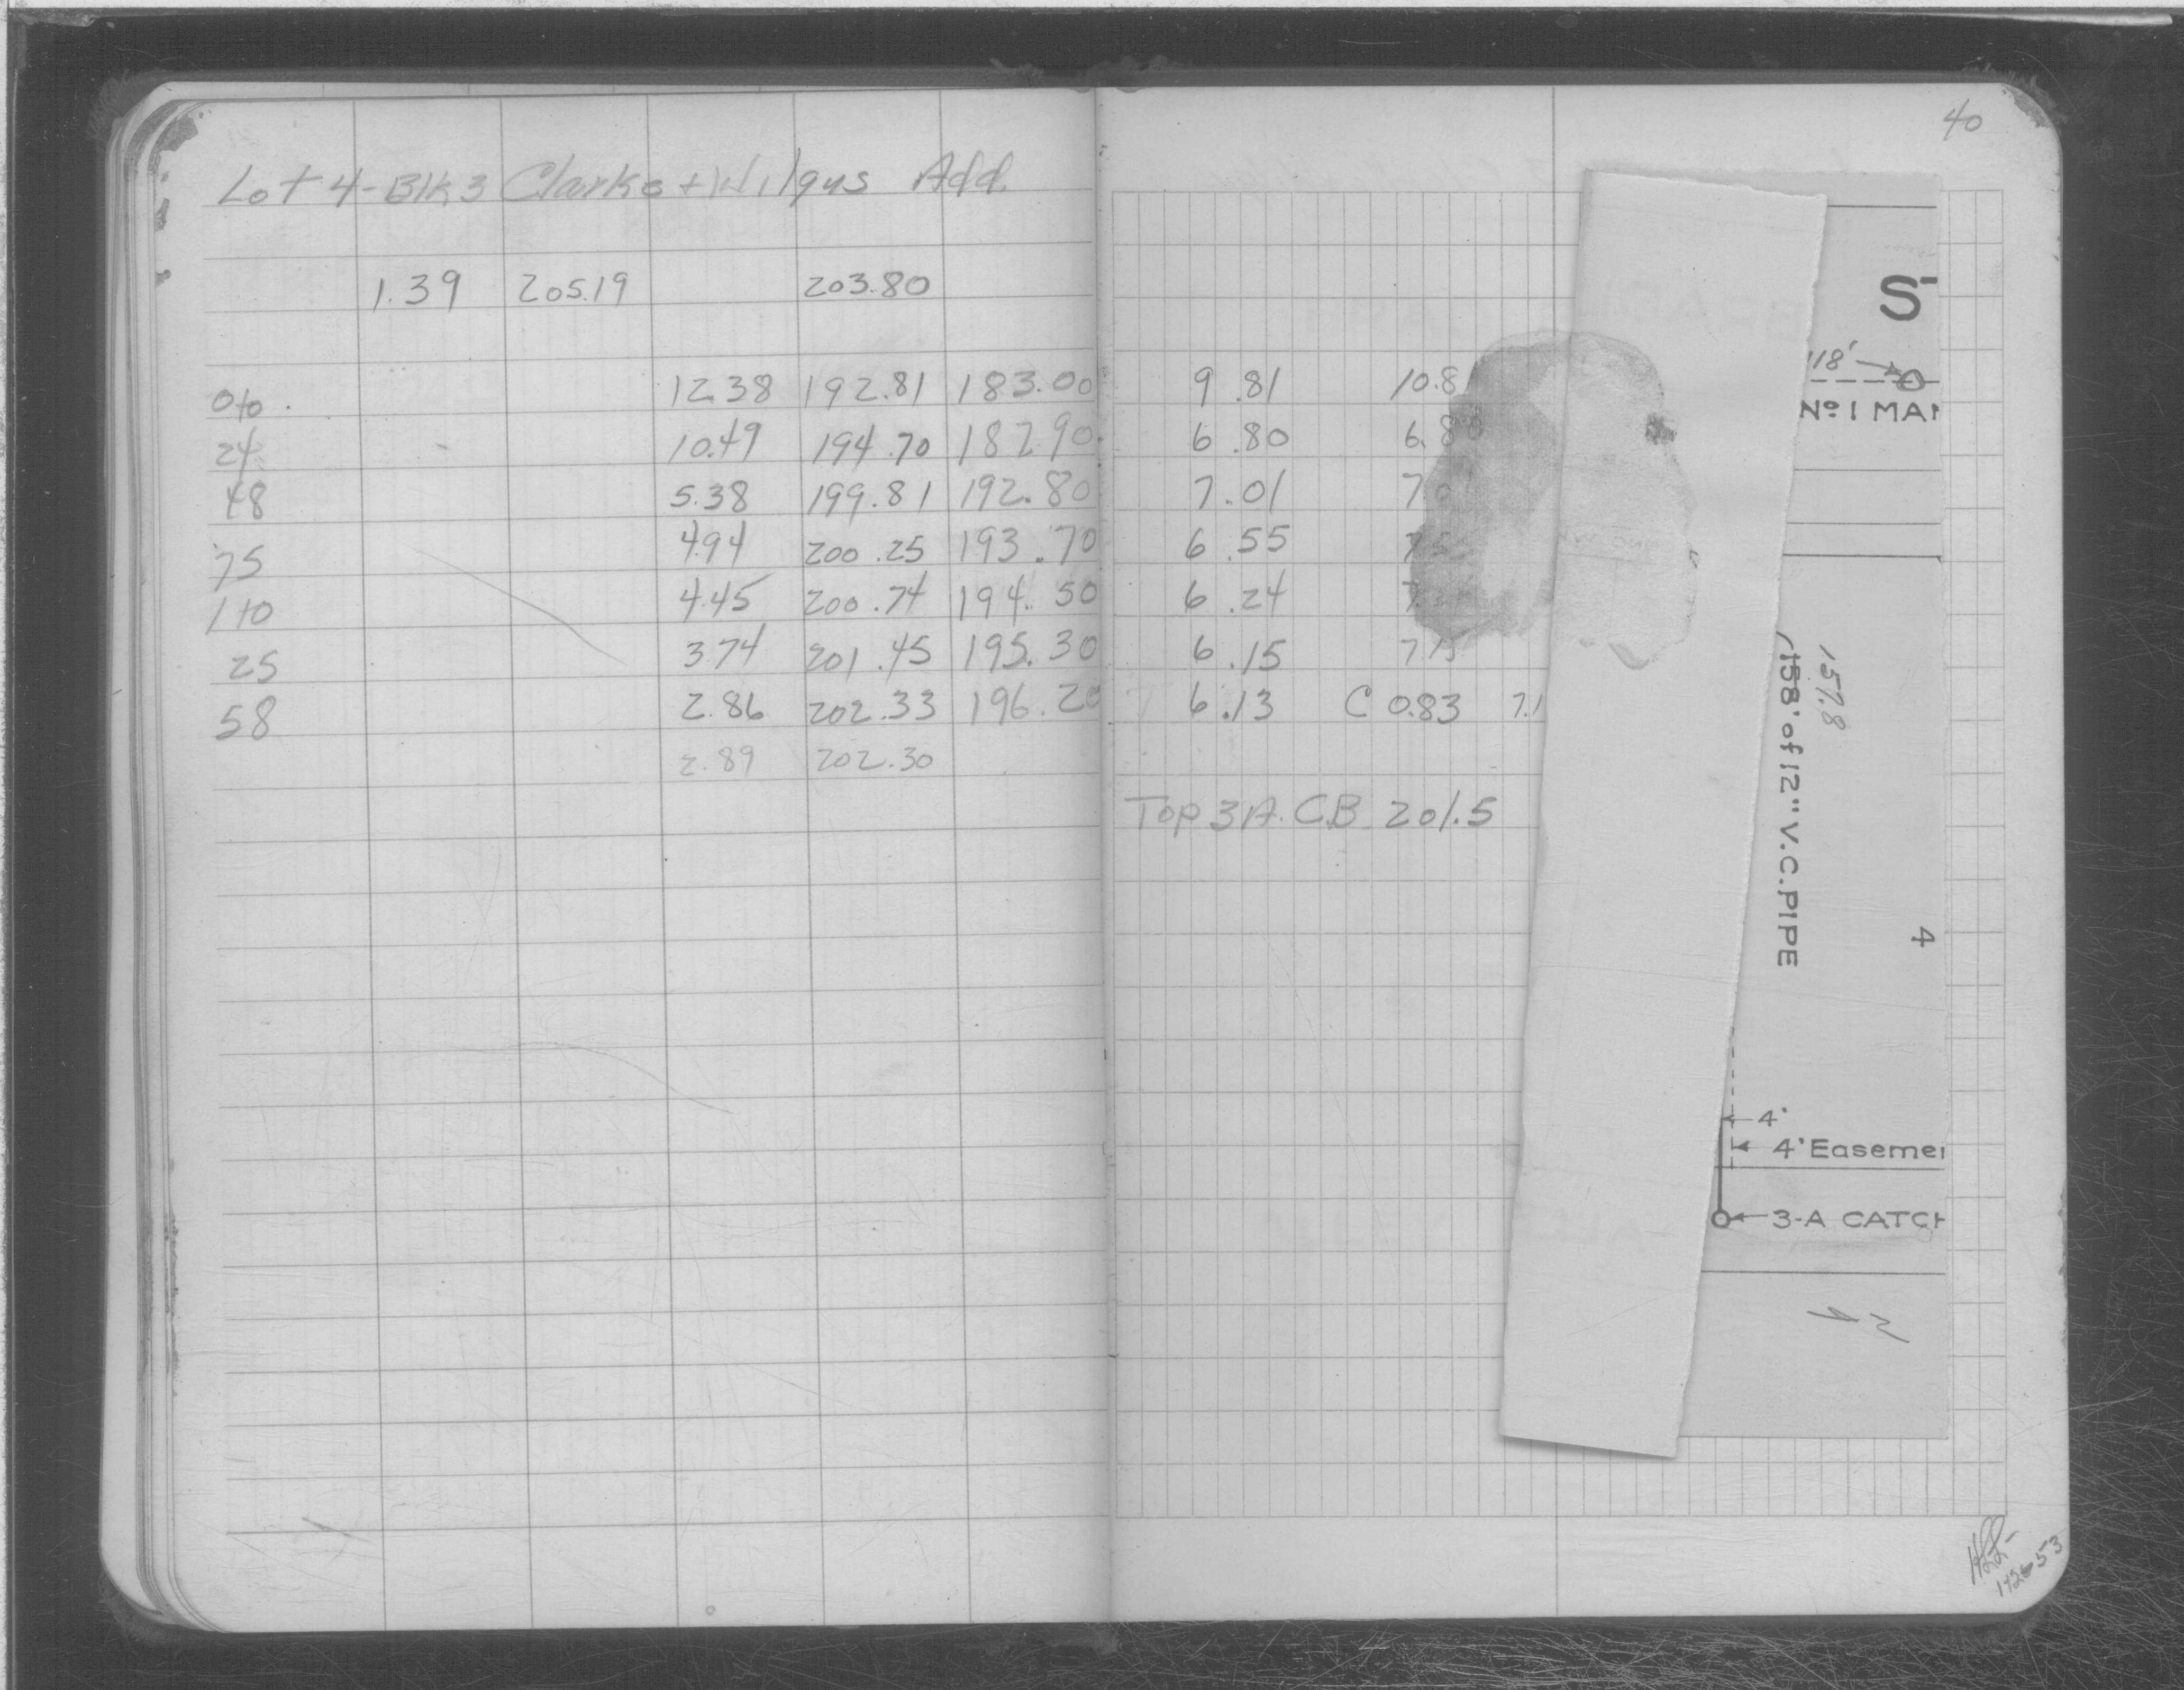 40
Lot 4 - Blk 3 Clarke + Wilgus Add.
1.39 205.19 203.80
0+0 12.38 192.81 183.00 9.81 10.8
24 10.49 194.70 187.90 6.80 6.8
48 5.38 199.81 192.80 7.01 7.0
75 4.94 200.25 193.70 6.55 7.5
1+0 4.45 200.74 194.50 6.24
25 3.74 201.45 195.30 6.15 7.15
58 2.86 202.33 196.20 6.13 C 0.83 7.1
2.89 202.30
Top 3A. C.B 201.5
S
118'
No 1 MAN
157.8
158' of 12" V.C. PIPE
4
4'
4' Easemen
3-A CATCH
1-26-53